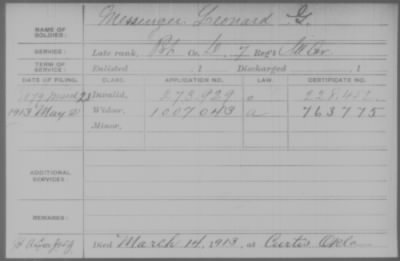 NAME OF SOLDIER: Messenger Leonard G.
SERVICE: Late rank, Co. 7 Reg't
TERM OF SERVICE: Enlisted , 1 Discharged , 1
DATE OF FILING. CLASS. APPLICATION NO. LAW. CERTIFICATE NO.
1879 Invalid, 273.929 228.482
1913 May Widow, 1007043 a 763775
Minor,
ADDITIONAL SERVICES:
REMARKS:
Died March 14, 1913, at Curtis Okla